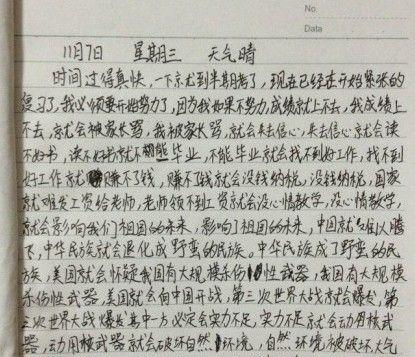 No.
Data
11月7日 星期三 天气晴
时间过得真快,一下就到半期考了,现在已经在开始紧张的
复习了,我必须要开始努力了,因为我如果不努力,成绩就上不去,我成绩上
不去,就会被家长骂,我被家长骂,就会失去信心,失去信心就会读
不好书,读不好书就不能毕业,不能毕业就会找不到好工作,找不到
好工作就赚不了钱,赚不了钱就会没钱纳税,没钱纳税,国家
就难发工资给老师,老师领不到工资就会没心情教学,没心情教学,
就会影响我们祖国的未来,影响了祖国的未来,中国就难以腾
飞,中华民族就会退化成野蛮的民族。中华民族成了野蛮的民
族,美国就会怀疑我国有大规模杀伤性武器,我国有大规模
杀伤性武器,美国就会向中国开战,第三次世界大战就会爆发,第
三次世界大战爆发其中一方必定会实力不足,实力不足就会动用核武
器,动用核武器就会破坏自然环境,自然环境被破坏,大气